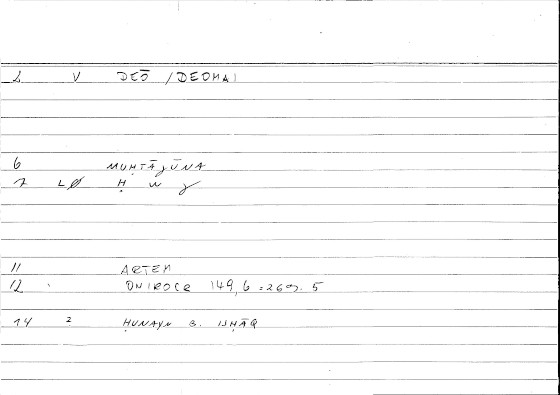 2 V DEŌ /DEOMAI
6 MUḤTĀJŪNA
7 LØ Ḥ W J
11 ARTEM
12 ONIROCR 149,6 = 269. 5
14 2 ḤUNAYN B. ISḤĀQ